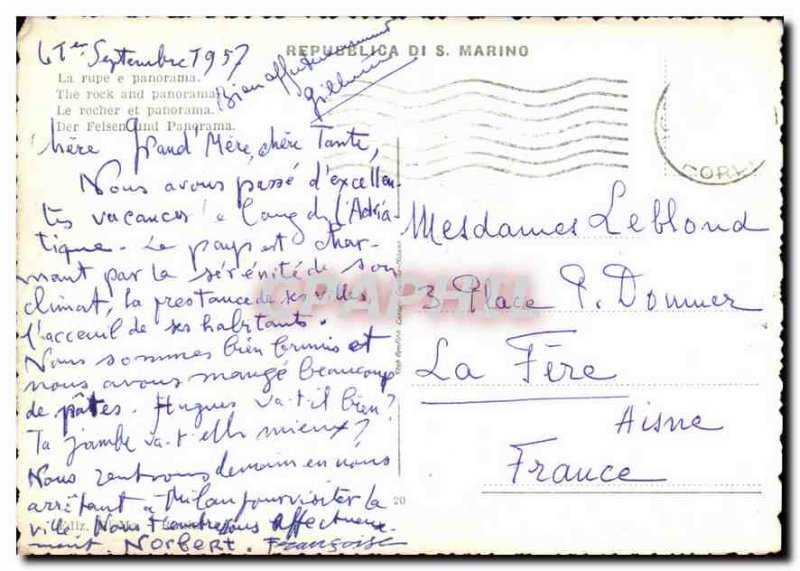 Septembre 1957
REPUBBLICA DI S. MARINO
La rupe e panorama.
The rock and panorama.
Le rocher et panorama.
Der Felsen und Panorama.
Bien affectueusement
CORR
chère Grand'Mère, chère Tante,
Nous avons passé d'excellen-
tes vacances le long de l'Adria-
tique. Le pays est char-
mant par la sérénité de son
climat, la prestance de ses villes,
l'acceuil de ses habitants.
Nous sommes bien brunis et
nous avons mangé beaucoup
de pâtes. Hugues va-t-il bien?
Ta jambe va-t-elle mieux?
Nous rentrons demain en nous
arrêtant à Milan pour visiter la
ville. Nous affectueuse-
ment. Norbert. Françoise
Mesdames Leblond
3 Place P. Doumer
La Fère
Aisne
France
20